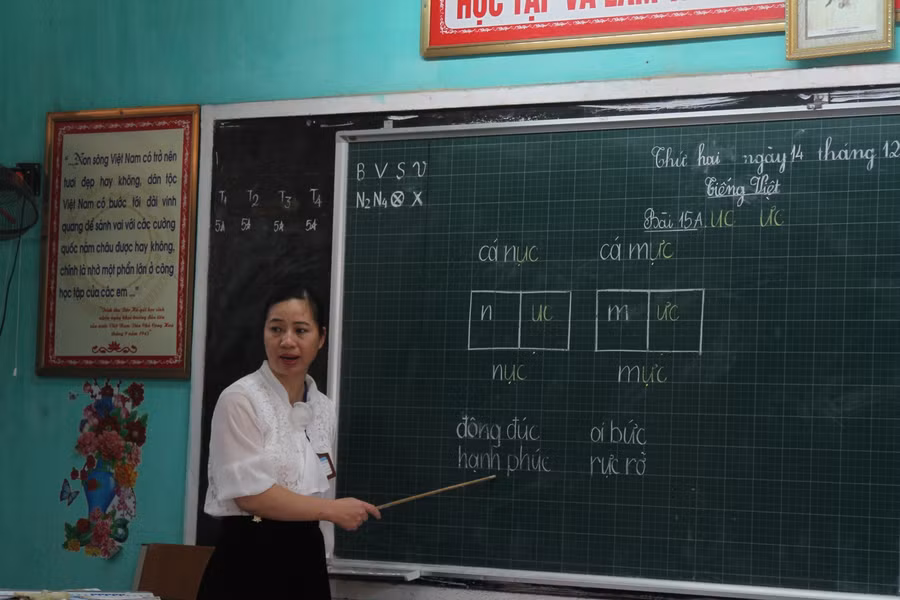 HỌC TẬP VÀ LÀM
"...Non sông Việt Nam có trở nên
tươi đẹp hay không, dân tộc
Việt Nam có bước tới đài vinh
quang để sánh vai với các cường
quốc năm châu được hay không,
chính là nhờ một phần lớn ở công
học tập của các em ..."
T1 T2 T3 T4
5A 5A 5A 5A
B V S V
N2 N4 X
Thứ hai ngày 14 tháng 12
Tiếng Việt
Bài 15A. uc ưc
cá nục cá mực
n uc m ưc
nục mực
đông đúc oi bức
hạnh phúc rực rỡ